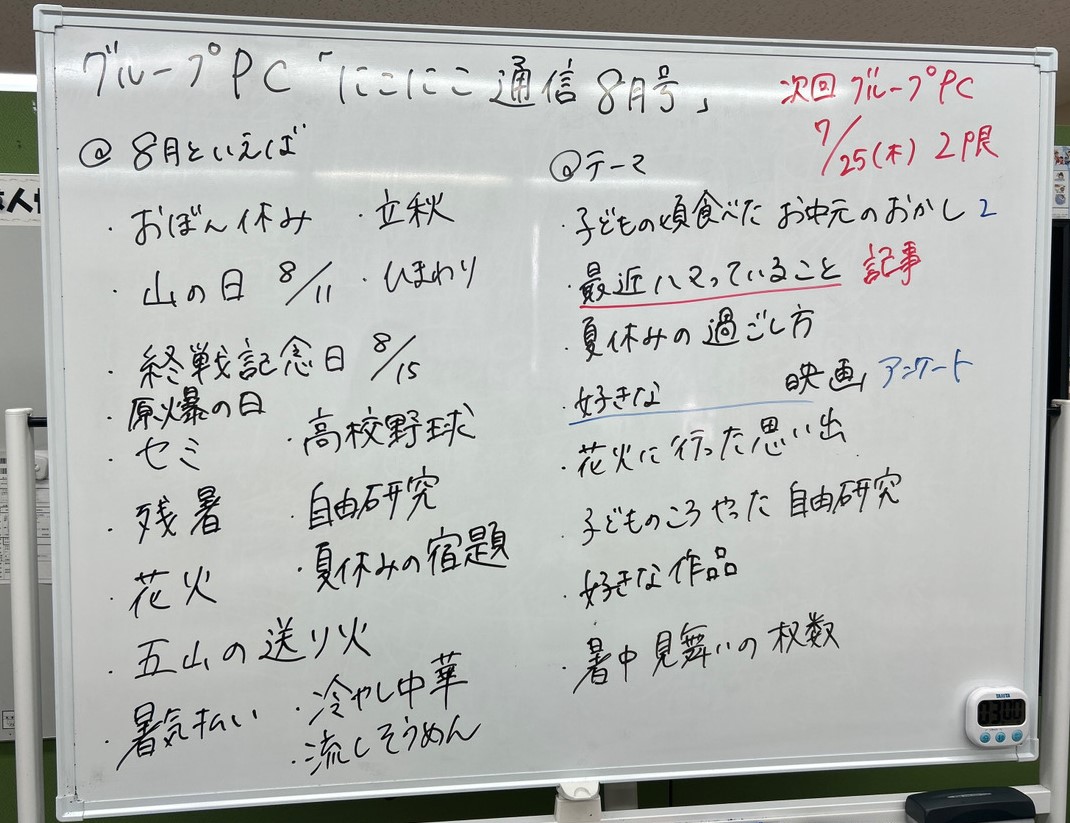 グループPC「にこにこ通信8月号」
次回グループPC
7/25(木) 2限
@ 8月といえば
・おぼん休み ・立秋
・山の日 8/11 ・ひまわり
・終戦記念日 8/15
・原爆の日
・セミ ・高校野球
・残暑 ・自由研究
・花火 ・夏休みの宿題
・五山の送り火
・暑気払い ・冷やし中華
・流しそうめん
@テーマ
・子どもの頃食べた お中元のおかし 2
・最近ハマっていること 記事
・夏休みの過ごし方
・好きな 映画 アンケート
・花火に行った思い出
・子どものころやった 自由研究
・好きな作品
・暑中見舞いの枚数
TANITA
0300